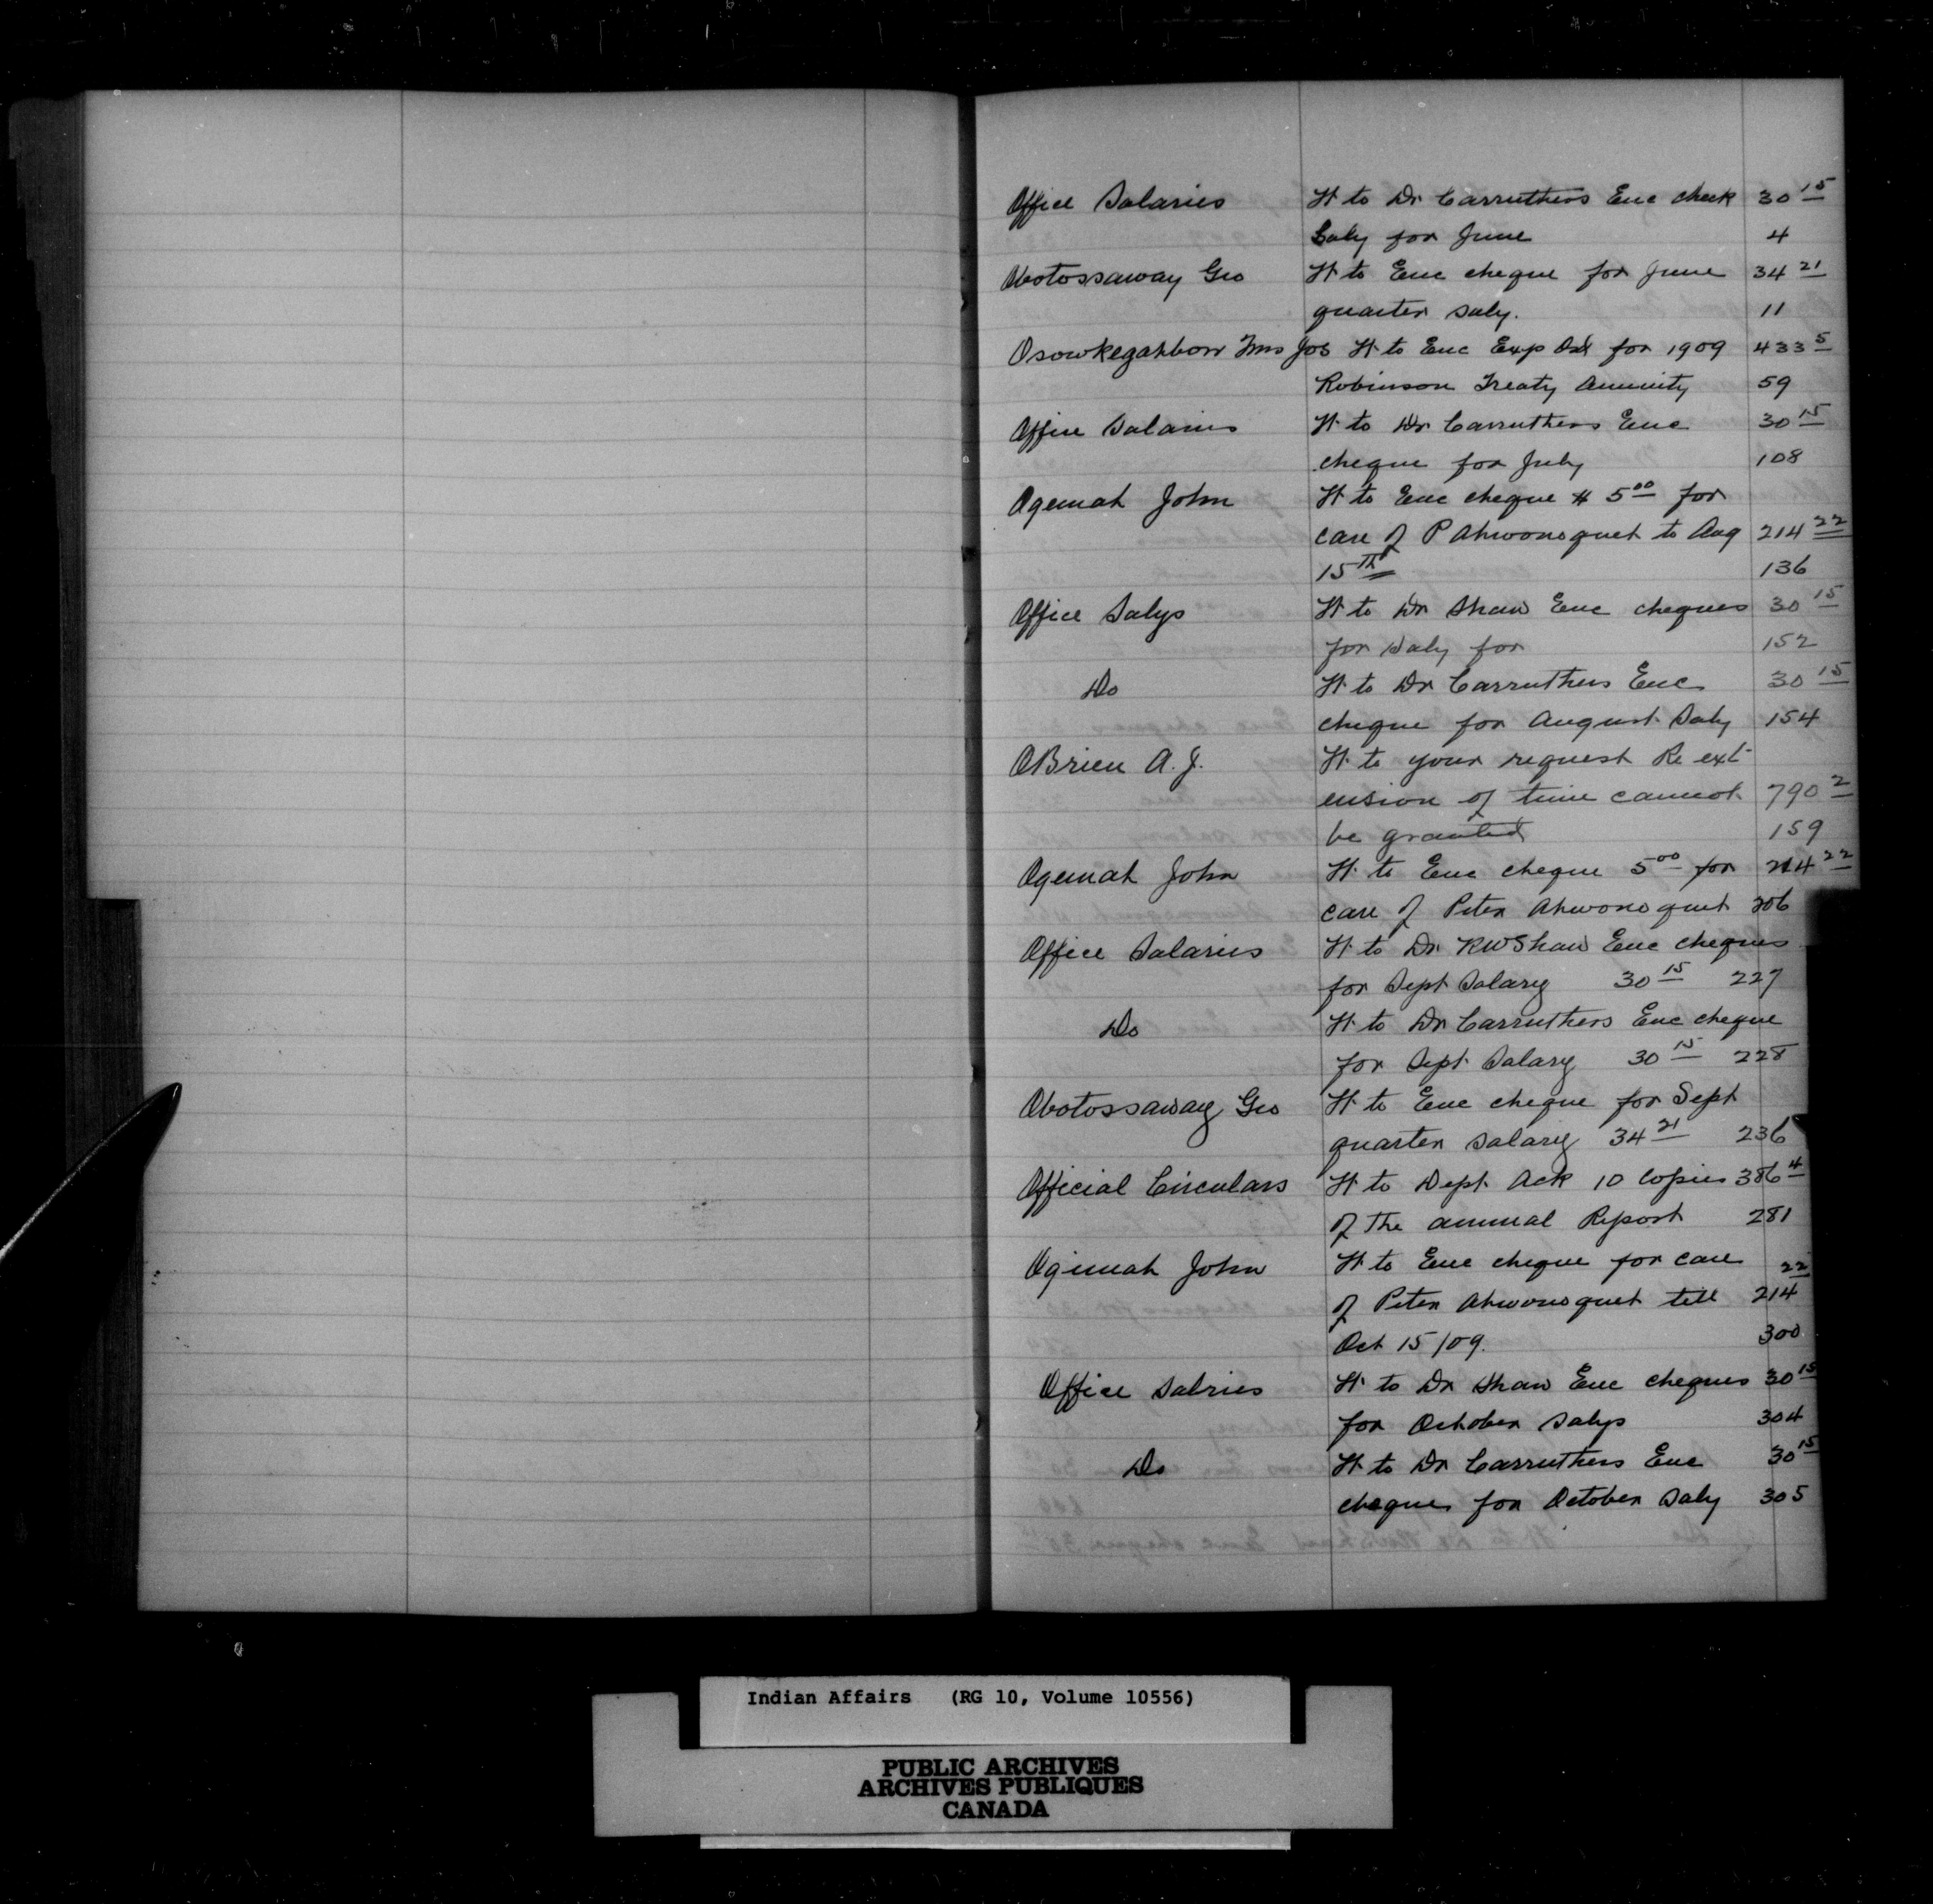 Office Salaries Ft to Dr Carruthers Enc check 30 15
Saly for June 4
Obotossaway Geo Ft to Enc cheque for June 34 21
quarter saly. 11
Osowkegahbow Mrs Jos Ft to Enc Exp Ord for 1909 433 5
Robinson Treaty Annuity 59
Office Salaries Ft to Dr Carruthers Enc 30 15
cheque for July 108
Agemah John Ft to Enc cheque $ 5 00 for
care of P Ahwonoquet to Aug 214 22
15 Th 136
Office Salys Ft to Dr Shaw Enc cheques 30 15
for Saly for 152
Do Ft to Dr Carruthers Enc 30 15
cheque for August Saly 154
OBrien A. J. Ft to your request Re ext-
ension of time cannot 790 2
be granted 159
Ogemah John Ft to Enc cheque 5 00 for 214 22
care of Peter Ahwonoquet 206
Office Salaries Ft to Dr. RW Shaw Enc cheques
for Sept Salary 30 15 227
Do Ft to Dr Carruthers Enc cheque
for Sept Salary 30 15 228
Obotossaway Geo Ft to Enc cheque for Sept
quarter salary 34 21 236
Official Circulars Ft to Dept Ack 10 Copies 386 4
of The annual Report 281
Ogemah John Ft to Enc cheque for care 22
of Peter Ahwonoquet till 214
Oct 15/09. 300
Office Salries Ft to Dr Shaw Enc cheques 30 15
for October Salys 304
Do Ft to Dr Carruthers Enc 30 15
cheques for October Saly 305
Indian Affairs (RG 10, Volume 10556)
PUBLIC ARCHIVES
ARCHIVES PUBLIQUES
CANADA